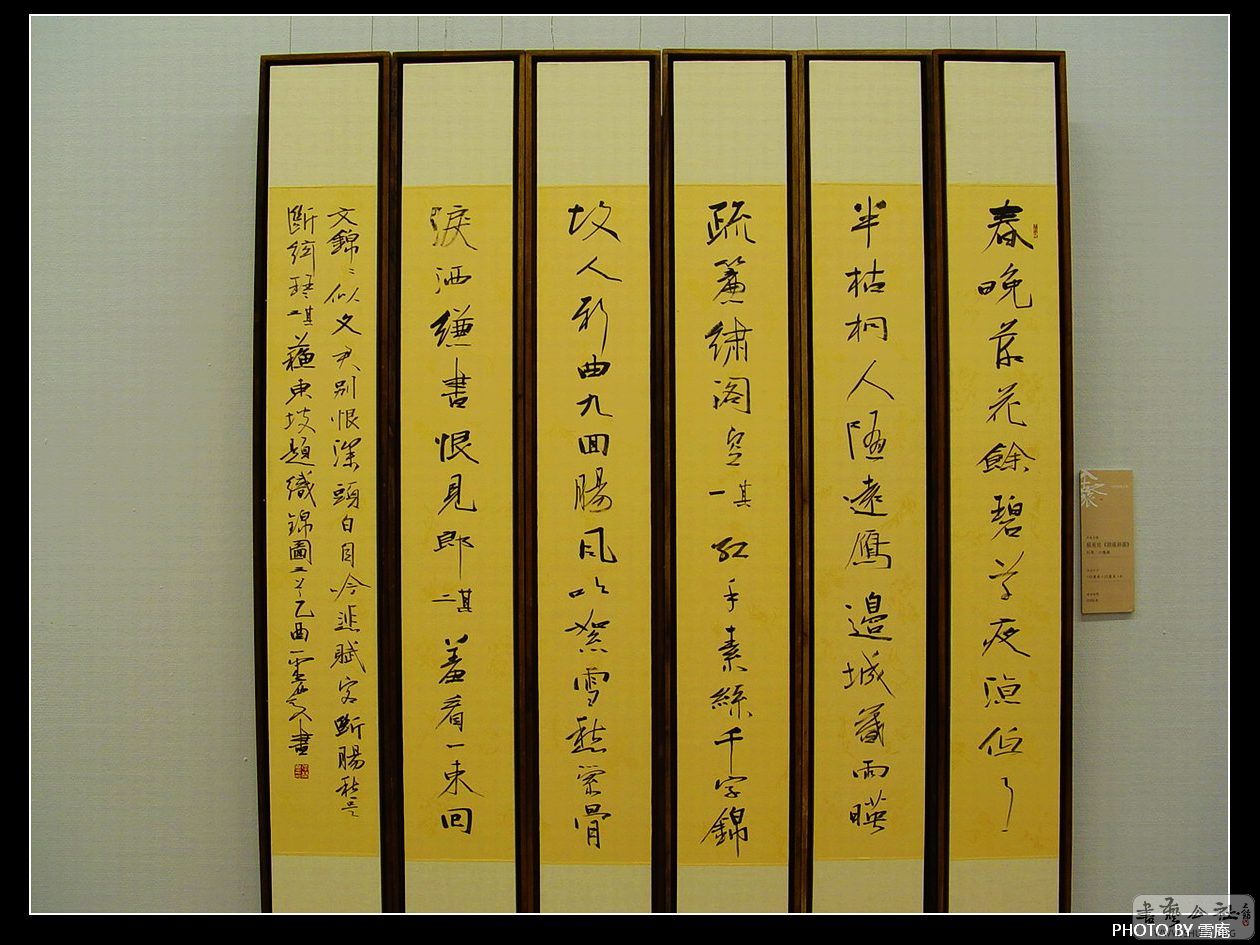 春晚落花餘碧草夜涼低月
半枯桐人隨遠鴈邊城暮雨暎
疏簾繡閣空其一紅手素絲千字錦
故人新曲九回腸風吹絮雪愁縈骨
淚洒縑書恨見郎其二羞看一束回
文錦〻似文君別恨深頭白自吟悲賦客斷腸愁是
斷絃琴其三蘇東坡題織錦圖三首乙酉書
書藝公社
PHOTO BY 雪庵